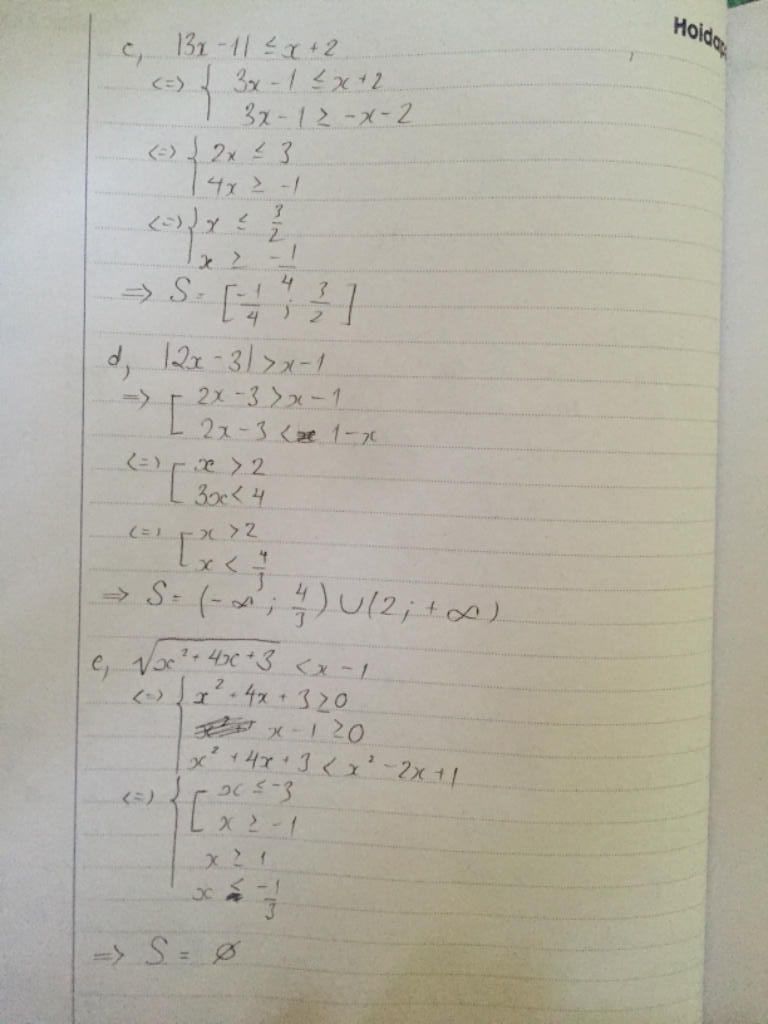 Hoidap
c, |3x - 1| ≤ x + 2
<=> { 3x - 1 ≤ x + 2
3x - 1 ≥ -x - 2
<=> { 2x ≤ 3
4x ≥ -1
<=> { x ≤ 3/2
x ≥ -1/4
=> S = [-1/4 ; 3/2]
d, |2x - 3| > x - 1
=> [ 2x - 3 > x - 1
2x - 3 < 1 - x
<=> [ x > 2
3x < 4
<=> [ x > 2
x < 4/3
=> S = (-∞ ; 4/3) ∪ (2 ; +∞)
e, √(x² + 4x + 3) < x - 1
<=> { x² + 4x + 3 ≥ 0
x - 1 ≥ 0
x² + 4x + 3 < x² - 2x + 1
<=> { [ x ≤ -3
x ≥ -1
x ≥ 1
x ≤ -1/3
=> S = ∅